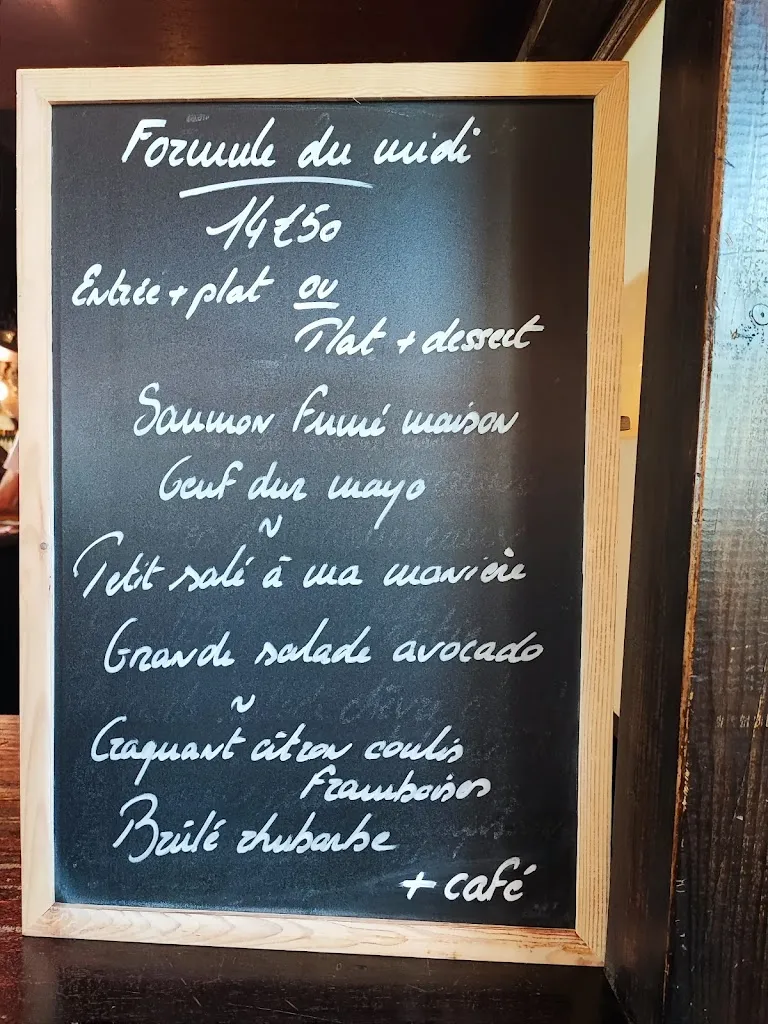 Formule du midi
14€50
Entrée + plat ou
Plat + dessert
Saumon fumé maison
Oeuf dur mayo
~
Petit salé à ma manière
Grande salade avocado
~
Craquant citron coulis
framboises
Brûlé rhubarbe
+ café